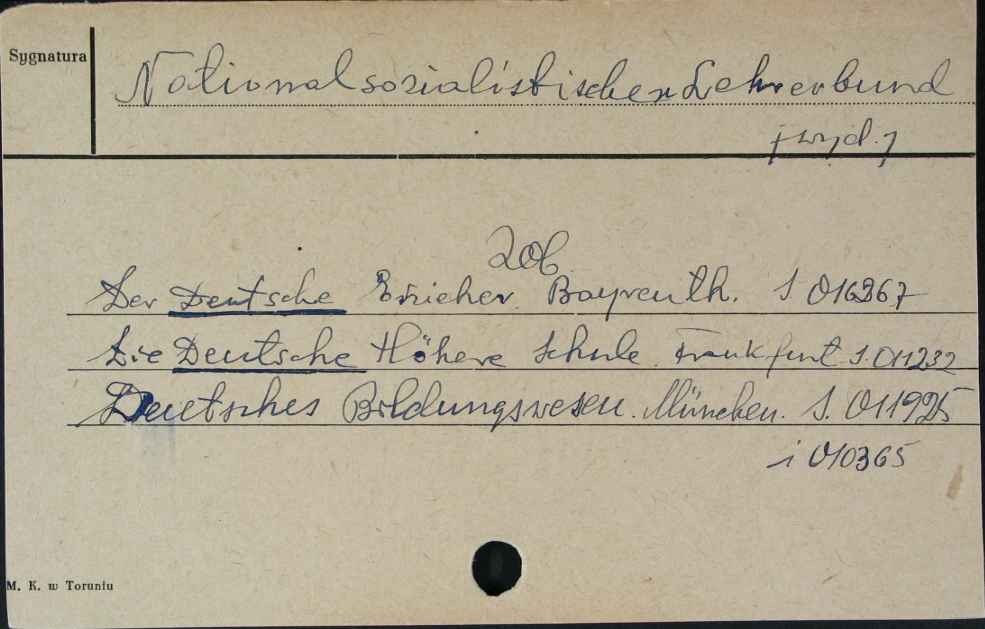 Sygnatura
Nationalsozialistischer Lehrerbund
[wyd.]
Zob
Der Deutsche Erzieher. Bayreuth. S 016267
Die Deutsche Höhere Schule. Frankfurt S. 011232
Deutsches Bildungswesen. München. S. 011925
i 010365
M. K. w Toruniu